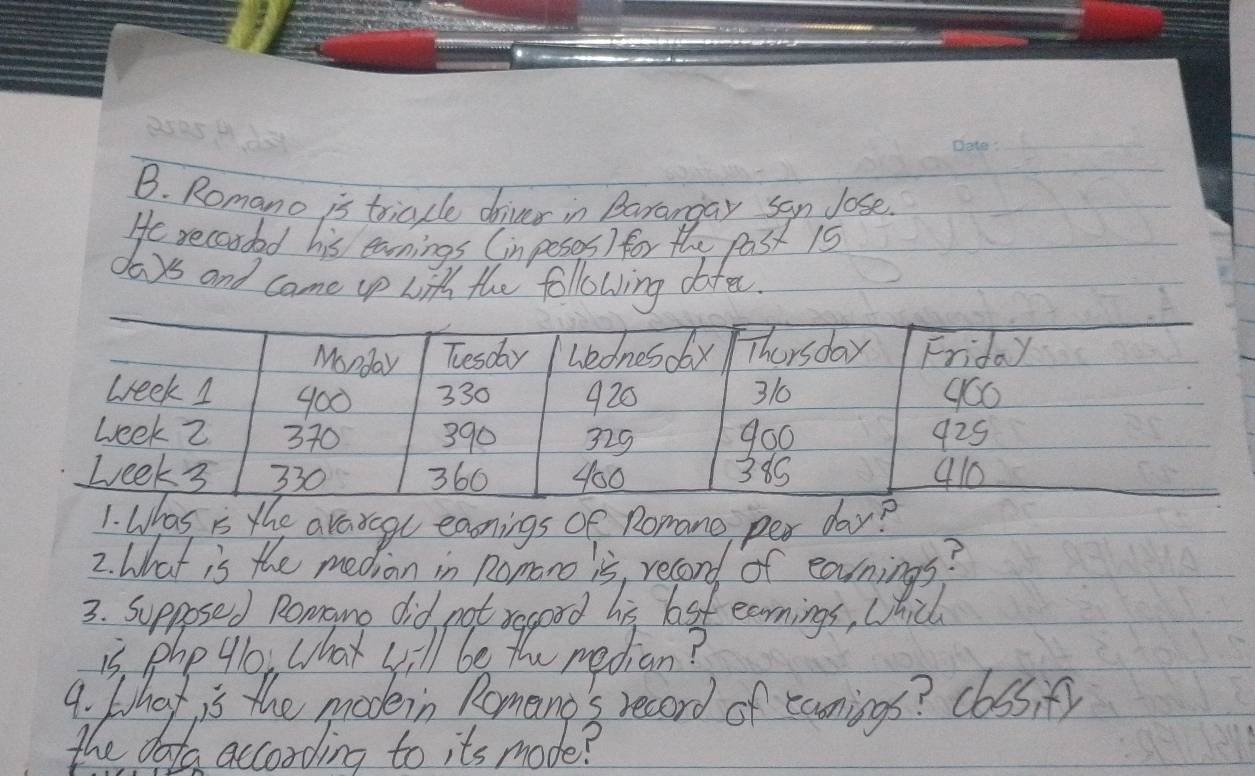 Date:
B. Romano is tricycle driver in Barangay San Jose.
He recorded his earnings (in pesos) for the past 15
days and came up with the following data.
Monday Tuesday Wednesday Thursday Friday
Week 1 400 330 420 310 400
Week 2 370 390 329 400 425
Week 3 330 360 400 385 410
1. Whas is the avarage earnings of Romano per day?
2. What is the median in Romano'is, record of earnings?
3. Supposed Romano did not record his last earnings, which
is Php 410, What will be the median?
4. What is the mode in Romano's record of earnings? Classify
the data according to its mode?